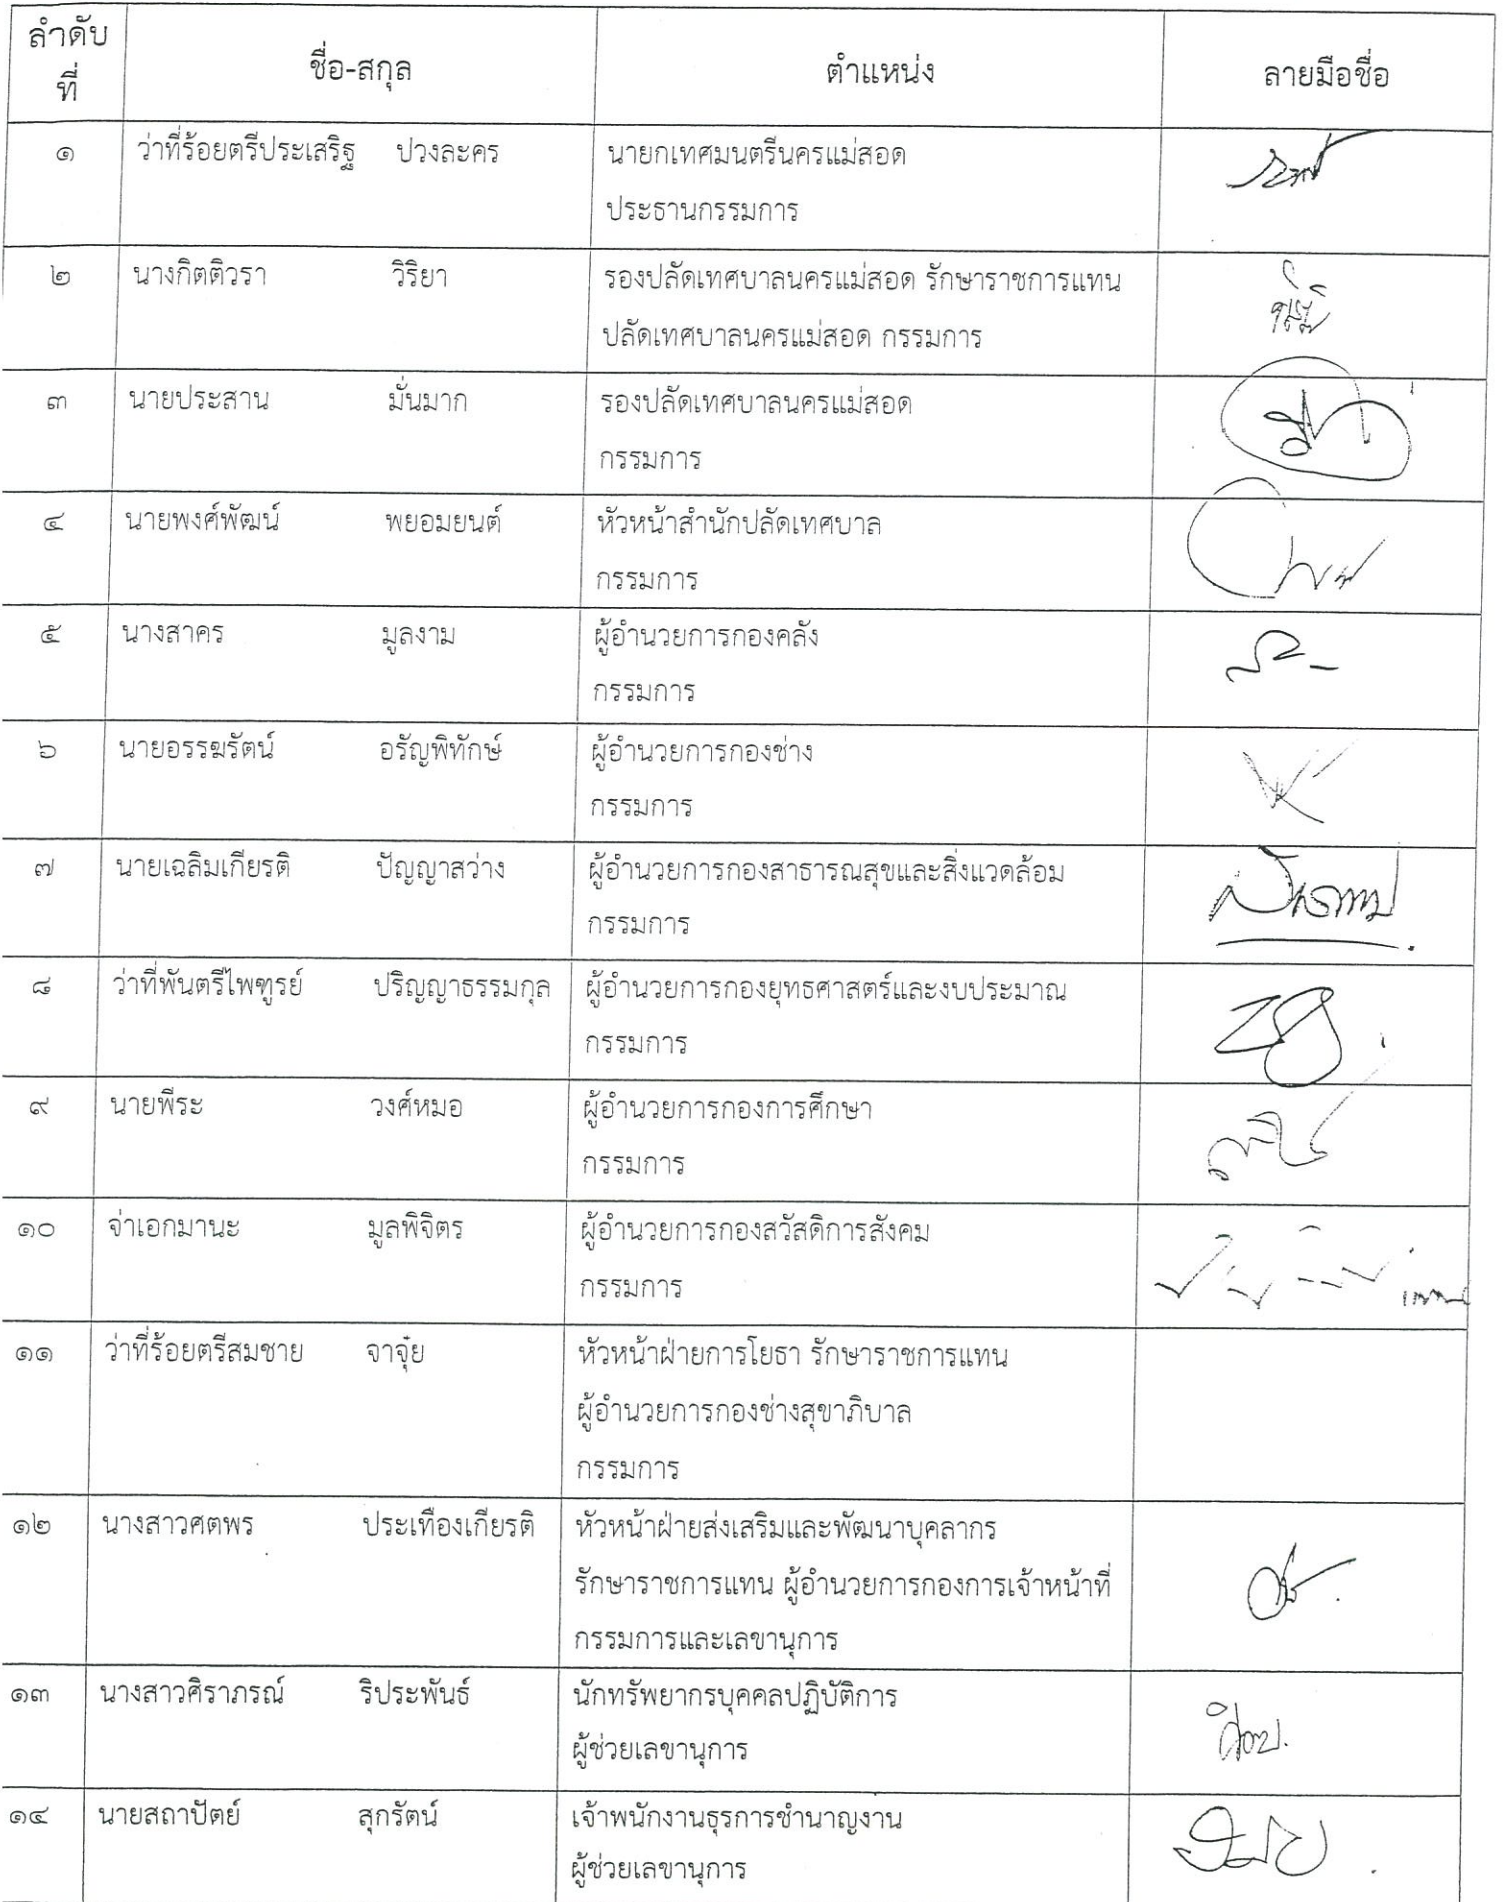 ลำดับ
ที่
ชื่อ-สกุล
ตำแหน่ง
ลายมือชื่อ
๑ ว่าที่ร้อยตรีประเสริฐ ปวงละคร นายกเทศมนตรีนครแม่สอด
ประธานกรรมการ
๒ นางกิตติวรา วิริยา รองปลัดเทศบาลนครแม่สอด รักษาราชการแทน
ปลัดเทศบาลนครแม่สอด กรรมการ
๓ นายประสาน มั่นมาก รองปลัดเทศบาลนครแม่สอด
กรรมการ
๔ นายพงศ์พัฒน์ พยอมยนต์ หัวหน้าสำนักปลัดเทศบาล
กรรมการ
๕ นางสาคร มูลงาม ผู้อำนวยการกองคลัง
กรรมการ
๖ นายอรรฆรัตน์ อรัญพิทักษ์ ผู้อำนวยการกองช่าง
กรรมการ
๗ นายเฉลิมเกียรติ ปัญญาสว่าง ผู้อำนวยการกองสาธารณสุขและสิ่งแวดล้อม
กรรมการ
๘ ว่าที่พันตรีไพฑูรย์ ปริญญาธรรมกุล ผู้อำนวยการกองยุทธศาสตร์และงบประมาณ
กรรมการ
๙ นายพีระ วงศ์หมอ ผู้อำนวยการกองการศึกษา
กรรมการ
๑๐ จ่าเอกมานะ มูลพิจิตร ผู้อำนวยการกองสวัสดิการสังคม
กรรมการ
๑๑ ว่าที่ร้อยตรีสมชาย จาจุ๋ย หัวหน้าฝ่ายการโยธา รักษาราชการแทน
ผู้อำนวยการกองช่างสุขาภิบาล
กรรมการ
๑๒ นางสาวศตพร ประเทืองเกียรติ หัวหน้าฝ่ายส่งเสริมและพัฒนาบุคลากร
รักษาราชการแทน ผู้อำนวยการกองการเจ้าหน้าที่
กรรมการและเลขานุการ
๑๓ นางสาวศิราภรณ์ ริประพันธ์ นักทรัพยากรบุคคลปฏิบัติการ
ผู้ช่วยเลขานุการ
๑๔ นายสถาปัตย์ สุกรัตน์ เจ้าพนักงานธุรการชำนาญงาน
ผู้ช่วยเลขานุการ